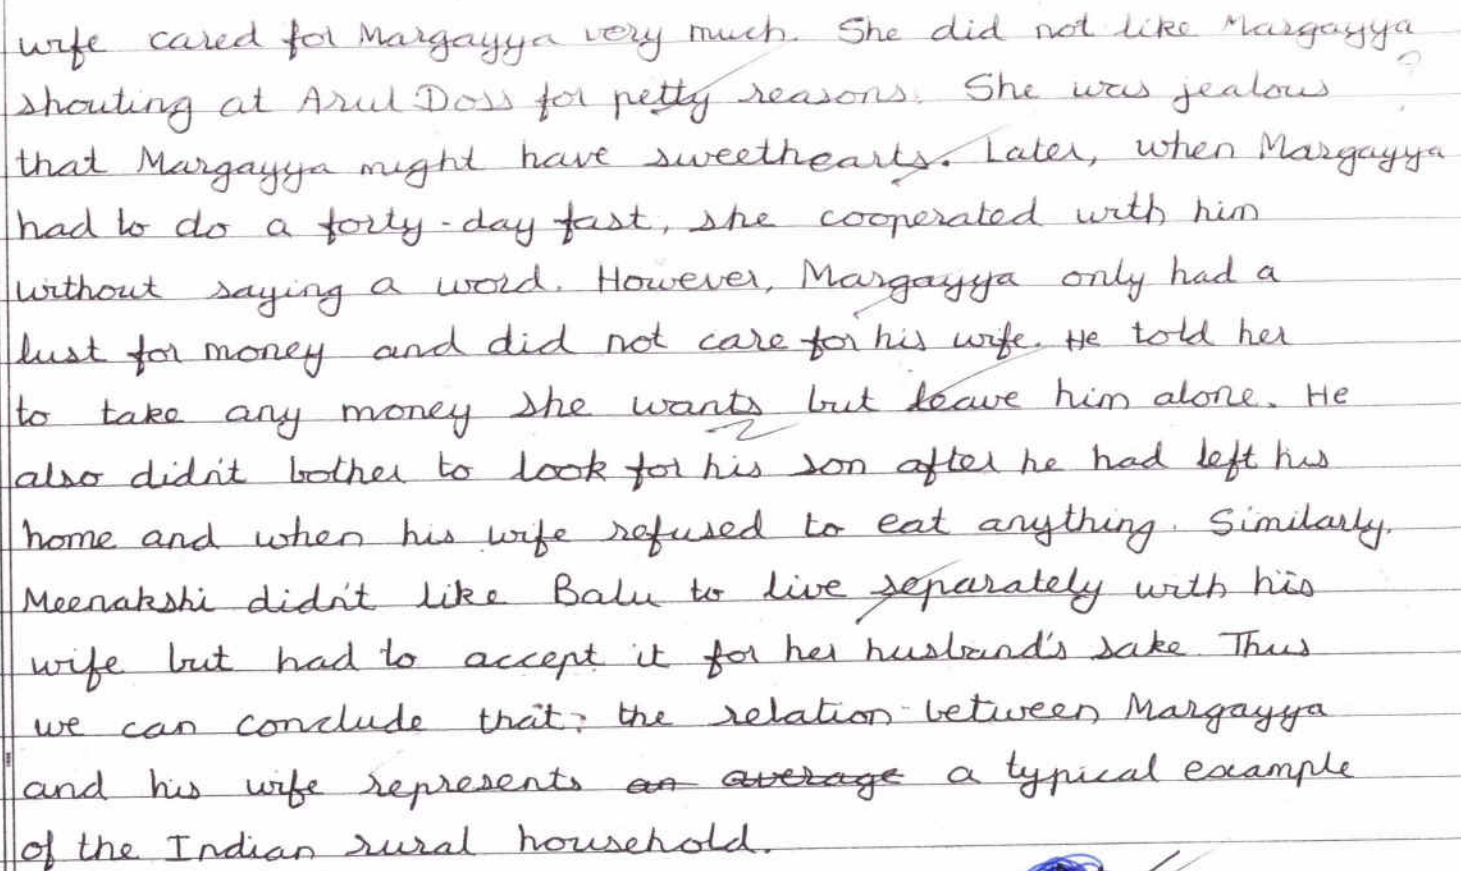 wife cared for Margayya very much. She did not like Margayya
shouting at Arul Doss for petty reasons. She was jealous
that Margayya might have sweethearts. Later, when Margayya
had to do a forty-day fast, she cooperated with him
without saying a word. However, Margayya only had a
lust for money and did not care for his wife. He told her
to take any money she wants but leave him alone. He
also didn't bother to look for his son after he had left his
home and when his wife refused to eat anything. Similarly.
Meenakshi didn't like Balu to live separately with his
wife but had to accept it for her husband's sake Thus
we can conclude that: the relation between Margayya
and his wife represents an average a typical example
of the Indian rural household.